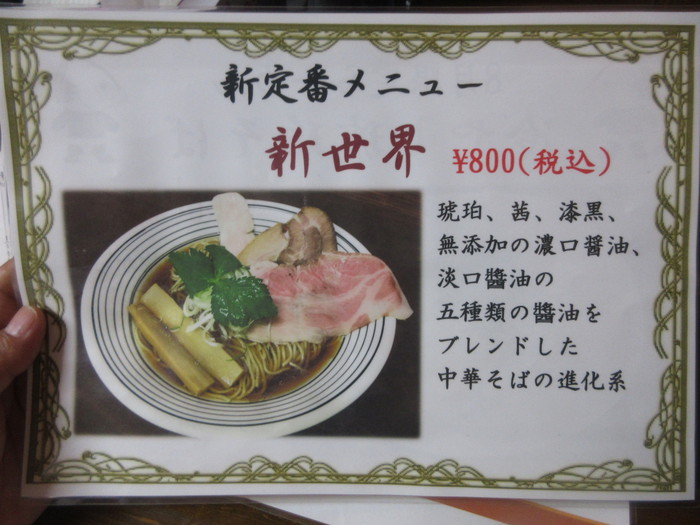 新定番メニュー
新世界 ¥800(税込)
琥珀、茜、漆黒、
無添加の濃口醤油、
淡口醬油の
五種類の醬油を
ブレンドした
中華そばの進化系